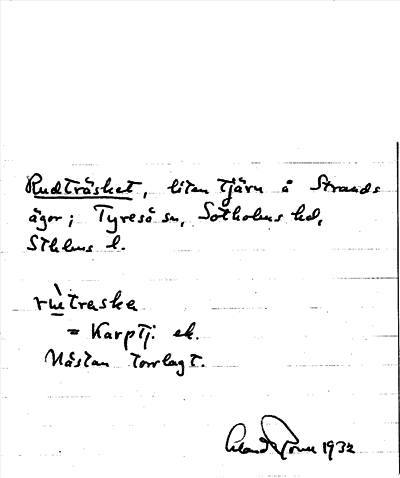 Rudträsket, liten tjärn å Strands
ägor; Tyresö sn, Sotholms hd,
Sthlms l.
rùtraska
= Karptj. ek.
Nästan torrlagt.
1932